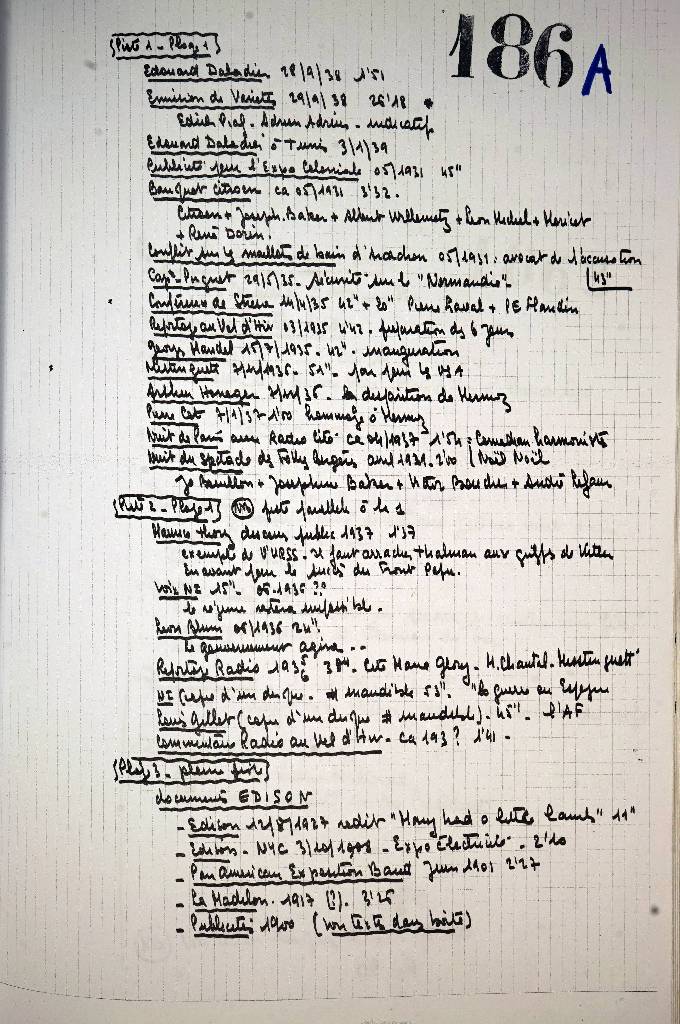 186 A
Piste 1 - Plage 1
Edouard Daladier 28/9/38 1'51
Emission de Varietes 29/9/38 26'18 *
Edith Piaf - Adrien Adrius - indicatif
Edouard Daladier à Tunis 3/1/39
Publicité pour l'Expo Coloniale 05/1931 45"
Banquet Citroen ca 05/1931 3'32.
Citroen + Joseph. Baker + Albert Willemetz + Leon +
+ René Dorin.
Conflit sur les maillots de bain d'Arcachon 05/1931: avocat de l'accusation
43"
Cape Puguet 29/5/35 - sécurité sur le "Normandie"
Conférence de Stresa 14/4/35 42" + 20" Pierre Laval + PE Flandin
Reportage au Vel d'Hiv 03/1935 4'42 - préparation des 6 jours
Georges Mandel 15/7/1935 - 42" - inauguration
Mistinguett 1935 - 51" - pour les USA
Arthur Honegger 36 - la disparition de Mermoz
Pierre Cot 7/1/37 1'00 hommage à Mermoz
Nuit de Paris avec Radio Cité ca 04/1937 - 1'54 = Comedian harmonists
Nuit du spectacle des Folies Bergères avril 1931. 2'00 / Noël Noël
Jo Bouillon + Josephine Baker + + André
Piste 2 - Plage 1 NB piste parallèle à la 1
Maurice Thorez discours public 1937 1'37
exemple de l'URSS - il faut arracher Thalman aux griffes de Hitler
En avant pour le succès du Front Popu.
Voix NI 15" 06-1936 ??
le régime restera impossible.
Leon Blum 06/1936 24"
Le gouvernement agira ..
Reportage Radio 193 38" - Cité Mona Goya - M. Chantal - Mistinguett
NI (copie d'un disque - # inaudible 53". "la guerre en Espagne
Louis Gillet (copie d'un disque # inaudible). 45" - l'AF
Commentaire Radio au Vel d'Hiv - ca 193? 1'41 -
Plage 3 - pleine piste
documents EDISON
- Edison 12/8/1927 redit "Mary had a little lamb" 11"
- Edison - NYC 3/10/1908 - Expo Electricité - 2'10
- Pan American Exposition Band Juin 1901 2'27
- La Madelon - 1917 (?). 3'25
- Publicités 1900 (voir texte dans boite)